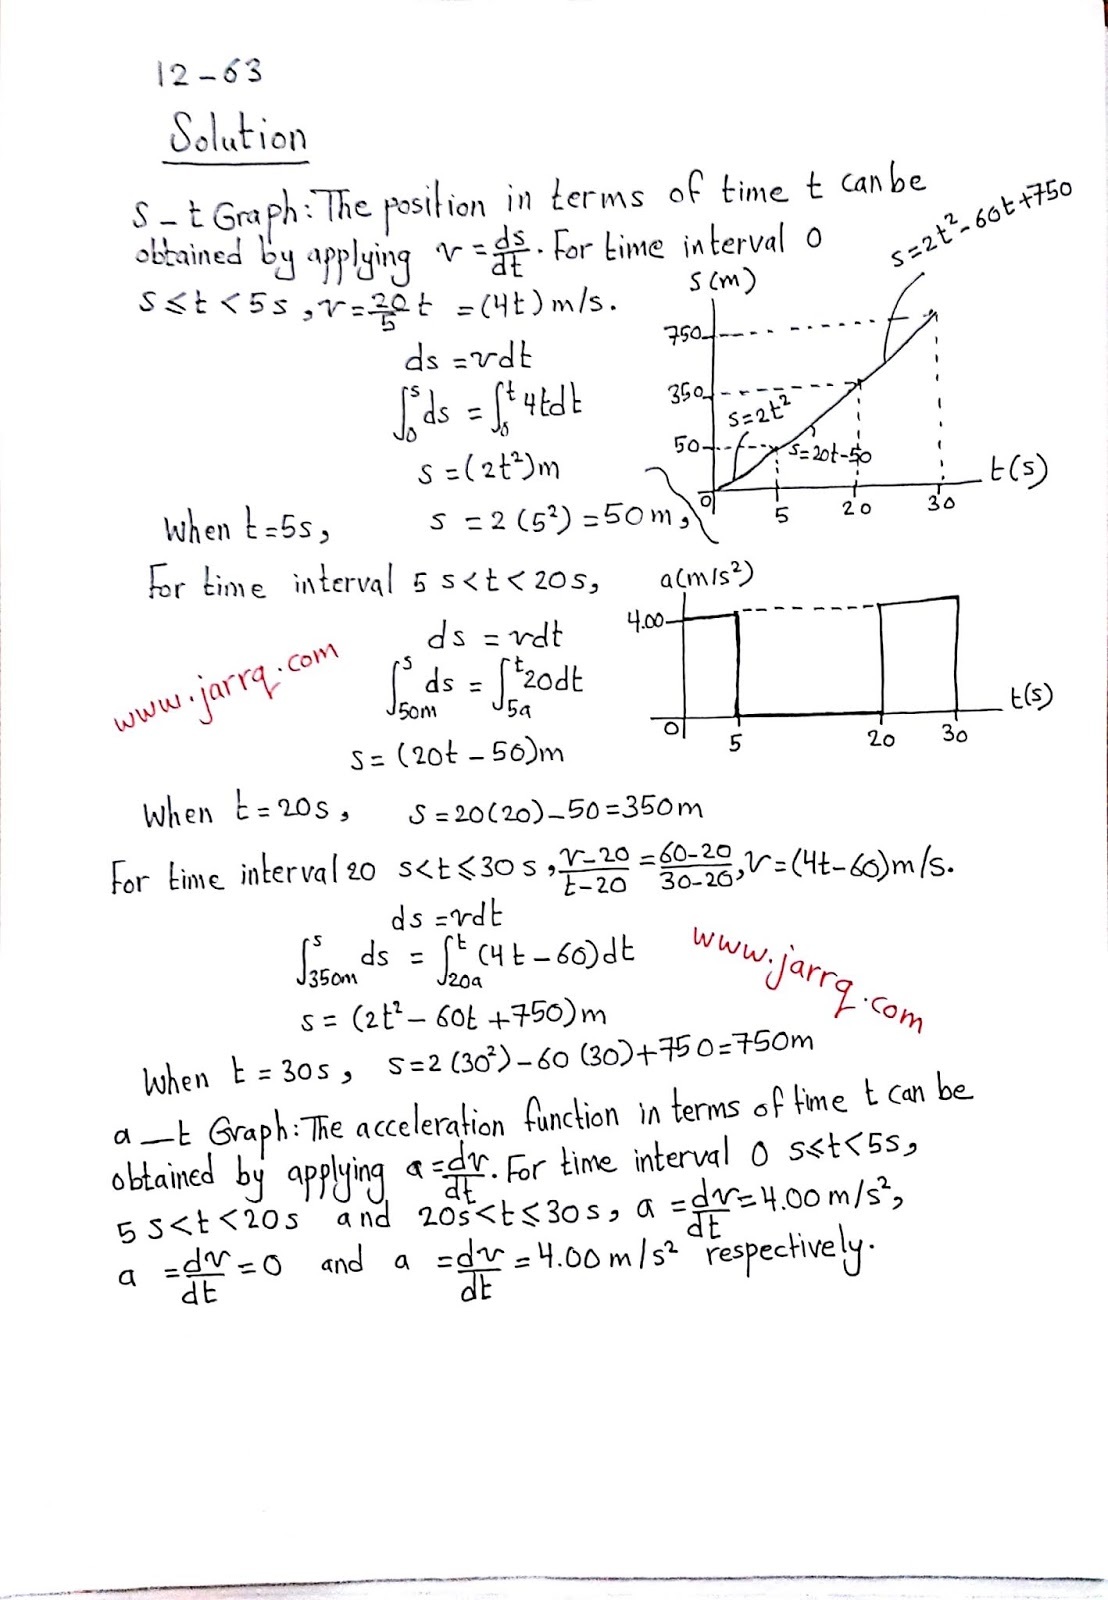 12-63
Solution
S-t Graph: The position in terms of time t can be
obtained by applying v = ds/dt. For time interval 0
S≤t<5s, v = 20/5 t = (4t) m/s.
ds = vdt
∫₀ˢ ds = ∫₀ᵗ 4tdt
s = (2t²)m
When t=5s, s = 2(5²) = 50m,
s=2t²-60t+750
s(m)
750
350
s=2t²
50
s=20t-50
t(s)
0 5 20 30
For time interval 5 s<t<20s,
ds = vdt
∫ˢ₅₀ₘ ds = ∫ᵗ₅ₐ 20dt
s = (20t-50)m
www.jarrq.com
a(m/s²)
4.00
t(s)
0 5 20 30
When t=20s, s=20(20)-50=350m
For time interval 20 s<t≤30s, v-20/t-20 = 60-20/30-20, v=(4t-60)m/s.
ds = vdt
∫ˢ₃₅₀ₘ ds = ∫ᵗ₂₀ₐ (4t-60)dt
www.jarrq.com
s = (2t²-60t+750)m
When t=30s, s=2(30²)-60(30)+750=750m
a-t Graph: The acceleration function in terms of time t can be
obtained by applying a = dv/dt. For time interval 0 s≤t<5s,
5 s<t<20s and 20s<t≤30s, a = dv/dt = 4.00 m/s²,
a = dv/dt = 0 and a = dv/dt = 4.00 m/s² respectively.